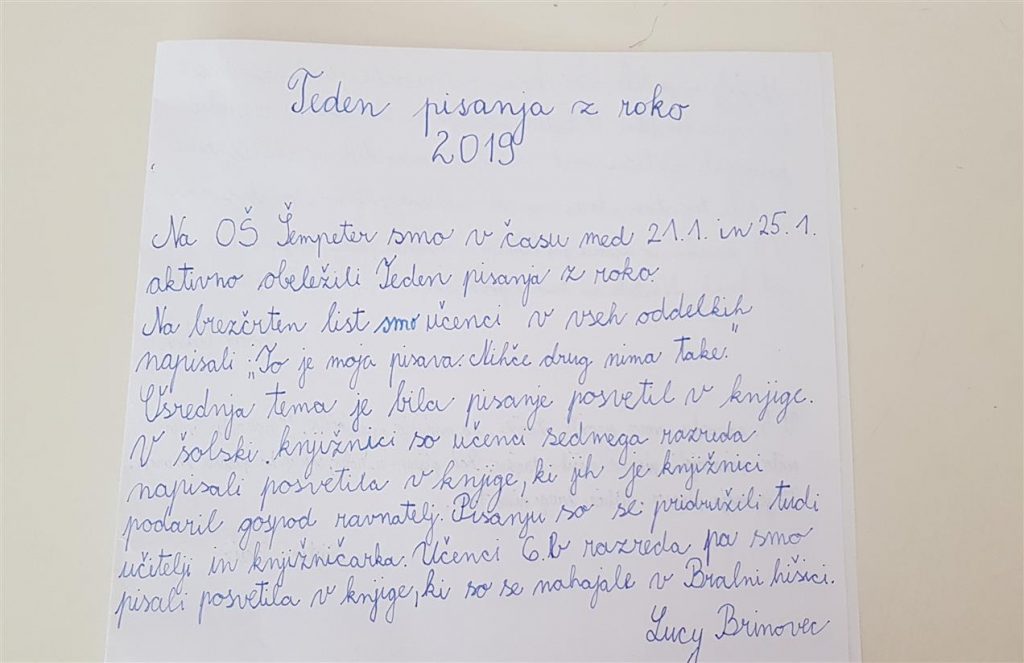 Teden pisanja z roko
2019
Na OŠ Šempeter smo v času med 21.1. in 25.1.
aktivno obeležili Teden pisanja z roko.
Na brezčrten list smo učenci v vseh oddelkih
napisali: „To je moja pisava. Nihče drug nima take."
Osrednja tema je bila pisanje posvetil v knjige.
V šolski knjižnici so učenci sedmega razreda
napisali posvetila v knjige, ki jih je knjižnici
podaril gospod ravnatelj. Pisanju so se pridružili tudi
učitelji in knjižničarka. Učenci 6.b razreda pa smo
pisali posvetila v knjige, ki so se nahajale v Bralni hišici.
Lucy Brinovec